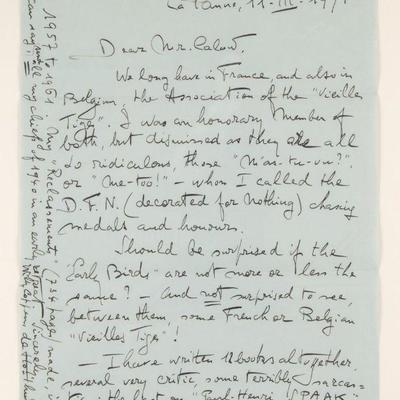 La Panne, 11-III-197
Dear Mr. Calow.
We long have in France, and also in
Belgium, the Association of the "Vieilles
Tiges". I was an honorary Member of
both, but dismissed as they are all
so ridiculous, those "M'as-tu-vu?",
or "me-too!" – whom I called the
D.F.N. (decorated for nothing) chasing
medals and honours.
Should be surprised if the
"Early Birds" are not more or less the
same? – And not surprised to see,
between them, some French or Belgian
"Vieilles Tiges"!
– I have written 12 books altogether,
several very critic, some terribly sarcas-
"Paul-Henri SPAAK"
1957 to 1961 in my "Reclassements" (734 pages) made,
can say! my chief of 1940 in an early repeat Sincerely,
Willy Coppens de Houthulst